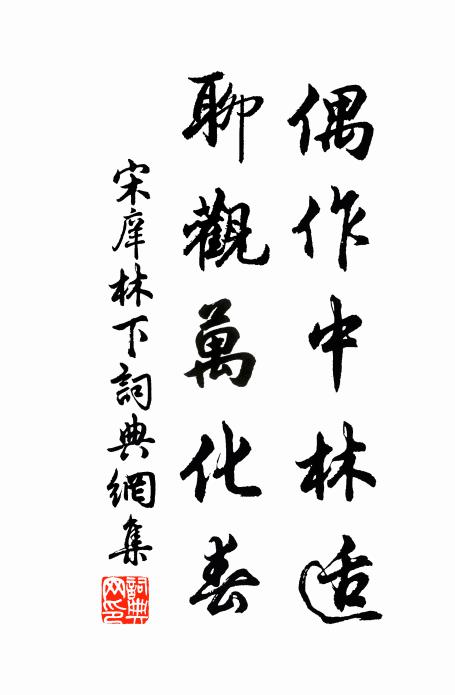 偶作中林适
聊觀萬化春
宋庠林下詞典網集
詞典网印